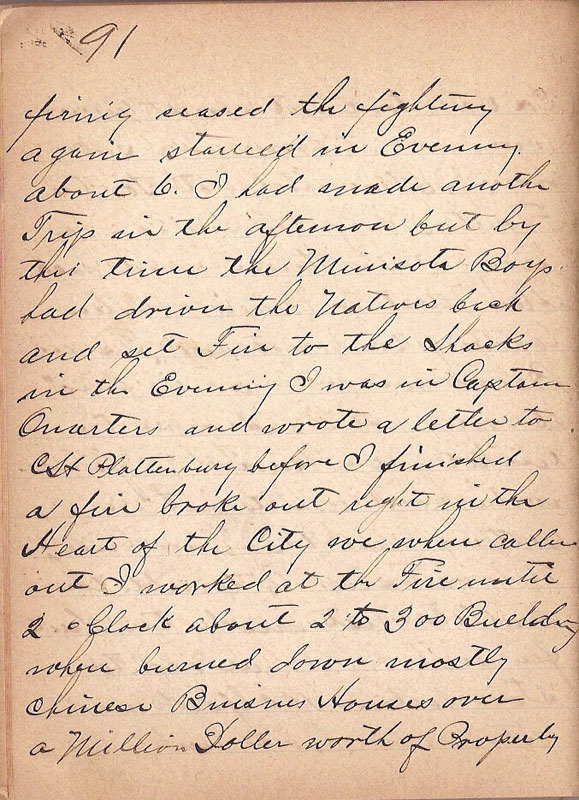 91
firing seased the fighting
again started in Evening
about 6. I had made another
Trip in the afternoon but by
this time the Minisota Boys
had driven the Natives back
and set Fire to the Shacks
in the Evening I was in Captain
Quarters and wrote a letter to
CSH Plattenburg before I finished
a fire broke out right in the
Heart of the City we when called
out I worked at the Fire until
2 oClock about 2 to 300 Building
when burned down mostly
Chinese Buisnes Houses over
a Million Doller worth of Property